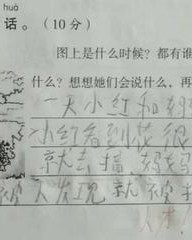 huà
话。（10 分）
图上是什么时候？都有谁
什么？想想她们会说什么，再
一天小红和妈
小红看到花很
就去摘，妈妈
被人发现就被